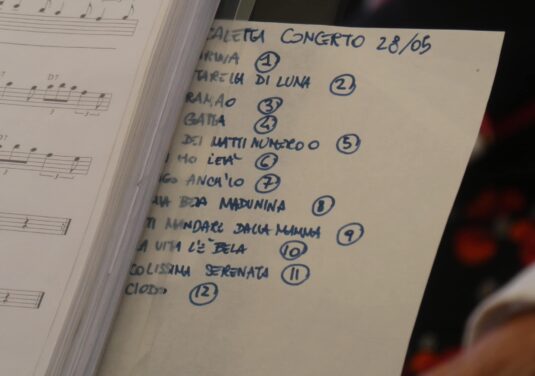 CALETTA CONCERTO 28/05
1
TARELLA DI LUNA 2
RAMAO 3
GATTA 4
DEI MATTI NUMERO 0 5
MO LEVA' 6
GO ANCH'IO 7
BEA MADUNINA 8
TI MANDARE DALLA MAMMA 9
LA VITA L'È BELA 10
COLISSIMA SERENATA 11
CIODO 12
D7
D7